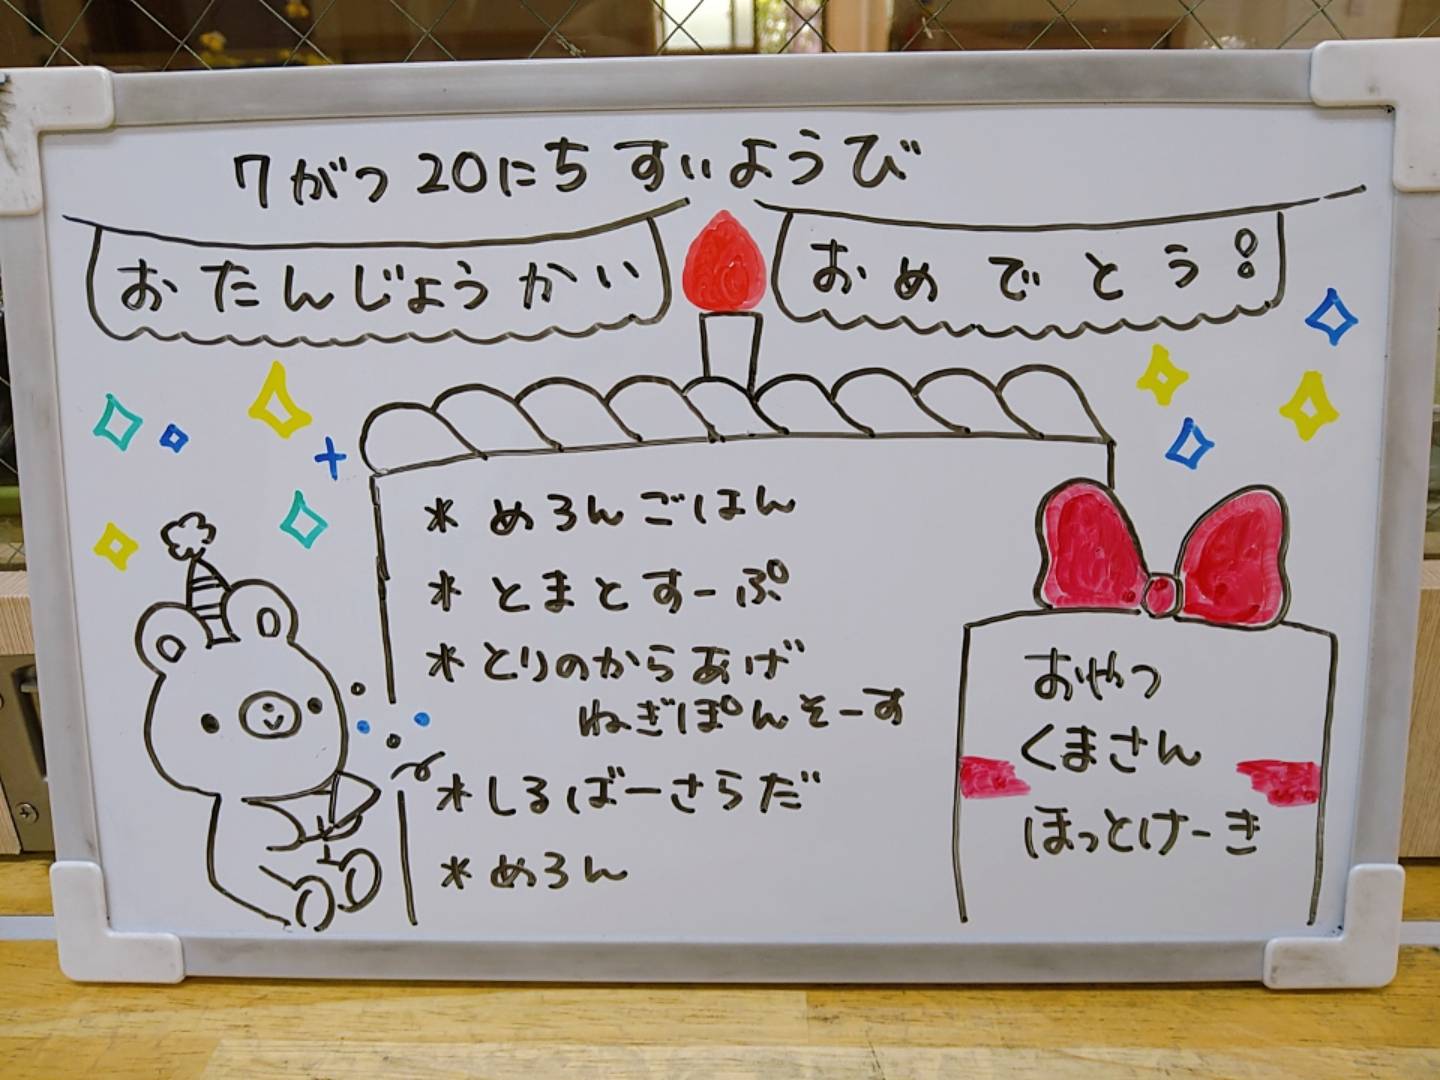 7がつ20にち すいようび
おたんじょうかい
おめでとう!
* めろんごはん
* とまとすーぷ
* とりのからあげ
ねぎぽんそーす
* しるばーさらだ
* めろん
おやつ
くまさん
ほっとけーき